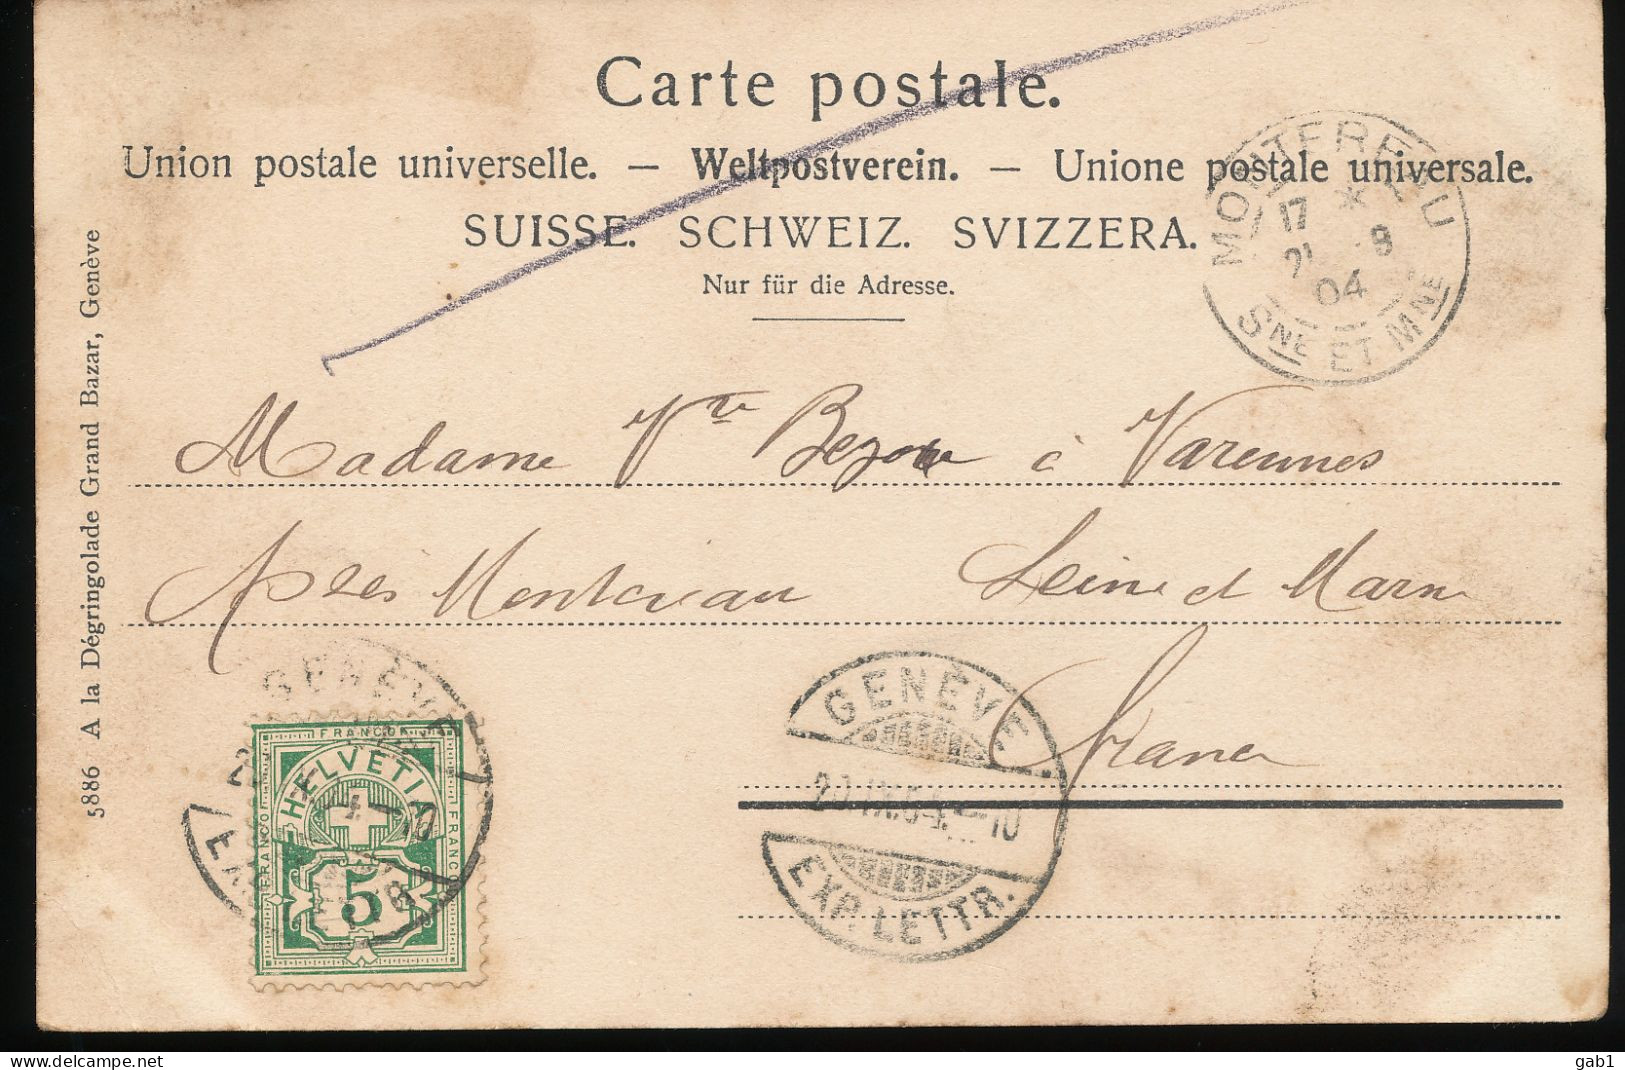 Carte postale.
Union postale universelle. — Weltpostverein. — Unione postale universale.
SUISSE. SCHWEIZ. SVIZZERA.
Nur für die Adresse.
MONTEREAU
17 *
21 9
04
SNE ET MNE
5886 A la Dégringolade Grand Bazar, Genève
Madame Vve à Varennes
près Montereau Seine et Marne
France
GENÈVE
20.IX.04.-10
EXP. LETTR.
GENÈVE
FRANCO
HELVETIA
FRANCO
FRANCO
5
delcampe.net
gab1